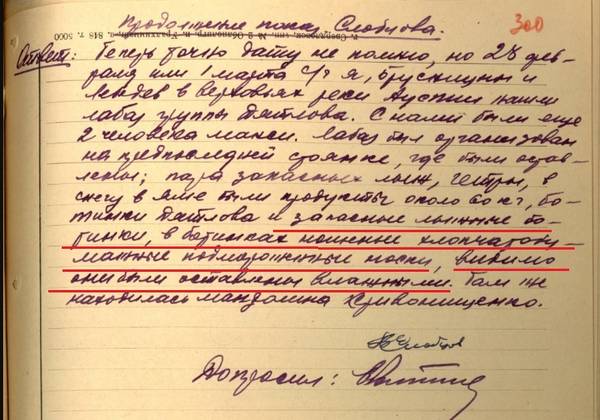 300
Продолжение показ. Слобцова.
Ответ: Теперь точно дату не помню, но 28 фев-
раля или 1 марта с/г я, Брусницын и
Лебедев в верховьях реки Ауспии нашли
лабаз группы Дятлова. С нами были еще
2 человека манси. Лабаз был организован
на предпоследней стоянке, где были остав-
лены: пара запасных лыж, гетры, в
снегу в яме были продукты около 60 кг, бо-
тинки Дятлова и запасные лыжные бо-
тинки, в ботинках ношенные хлопчатобу-
мажные подмороженные носки, видимо
они были оставлены влажными. Там же
находилась мандолина Кривонищенко.
Слобцов
Допросил: